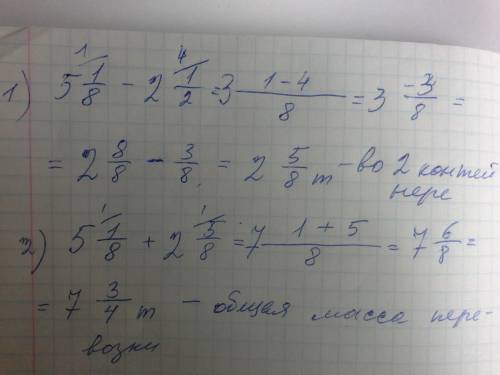 1) 5 1/8 - 2 1/2 = 3 (1-4)/8 = 3 -3/8 =
= 2 8/8 - 3/8 = 2 5/8 т - во 2 контей
нере
2) 5 1/8 + 2 5/8 = 7 (1+5)/8 = 7 6/8 =
= 7 3/4 т - общая масса пере-
возки